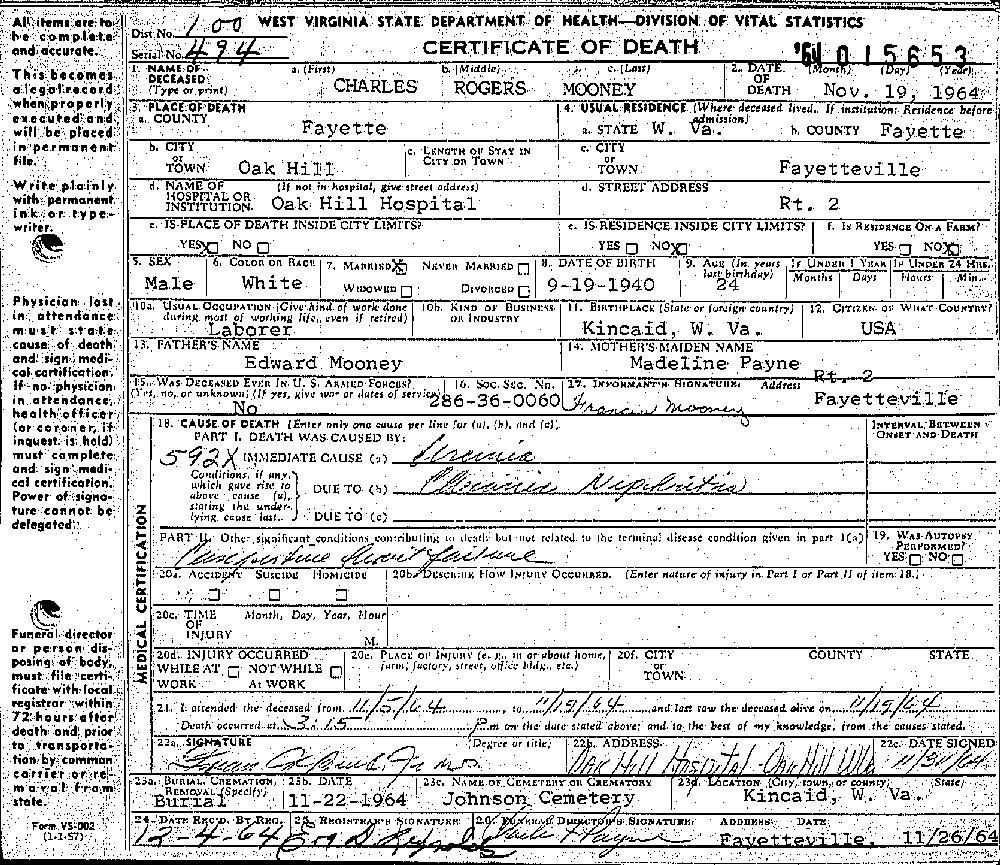 WEST VIRGINIA STATE DEPARTMENT OF HEALTH—DIVISION OF VITAL STATISTICS
Dist No. 100
Serial No. 494
CERTIFICATE OF DEATH
'64 015653
1. NAME OF DECEASED (Type or print) a. (First) CHARLES b. (Middle) ROGERS c. (Last) MOONEY
2. DATE OF DEATH (Month) (Day) (Year) Nov. 19, 1964
3. PLACE OF DEATH
a. COUNTY Fayette
4. USUAL RESIDENCE (Where deceased lived. If institution: Residence before admission)
a. STATE W. Va. b. COUNTY Fayette
b. CITY or TOWN Oak Hill
c. LENGTH OF STAY IN CITY OR TOWN
c. CITY or TOWN Fayetteville
d. NAME OF HOSPITAL OR INSTITUTION (If not in hospital, give street address) Oak Hill Hospital
d. STREET ADDRESS Rt. 2
e. IS PLACE OF DEATH INSIDE CITY LIMITS? YES X NO
e. IS RESIDENCE INSIDE CITY LIMITS? YES NO X
f. IS RESIDENCE ON A FARM? YES NO X
5. SEX Male
6. COLOR OR RACE White
7. MARRIED X NEVER MARRIED
WIDOWED DIVORCED
8. DATE OF BIRTH 9-19-1940
9. AGE (In years last birthday) 24
IF UNDER 1 YEAR Months Days
IF UNDER 24 HRS. Hours Min.
10a. USUAL OCCUPATION (Give kind of work done during most of working life, even if retired) Laborer
10b. KIND OF BUSINESS OR INDUSTRY
11. BIRTHPLACE (State or foreign country) Kincaid, W. Va.
12. CITIZEN OF WHAT COUNTRY? USA
13. FATHER'S NAME Edward Mooney
14. MOTHER'S MAIDEN NAME Madeline Payne
15. WAS DECEASED EVER IN U. S. ARMED FORCES? (Yes, no, or unknown) (If yes, give war or dates of service) No
16. SOC. SEC. No. 286-36-0060
17. INFORMANT'S SIGNATURE Mooney Address Rt. 2 Fayetteville
18. CAUSE OF DEATH (Enter only one cause per line for (a), (b), and (c).
PART I. DEATH WAS CAUSED BY:
INTERVAL BETWEEN ONSET AND DEATH
592X IMMEDIATE CAUSE (a) Uremia
Conditions, if any, which gave rise to above cause (a), stating the underlying cause last.
DUE TO (b) Chronic Nephritis
DUE TO (c)
PART II. Other significant conditions contributing to death but not related to the terminal disease condition given in part I(a)
Congestive heart failure
19. WAS AUTOPSY PERFORMED? YES NO
20a. ACCIDENT SUICIDE HOMICIDE
20b. DESCRIBE HOW INJURY OCCURRED. (Enter nature of injury in Part I or Part II of item 18.)
20c. TIME OF INJURY Month, Day, Year, Hour M.
20d. INJURY OCCURRED WHILE AT WORK NOT WHILE AT WORK
20e. PLACE OF INJURY (e. g., in or about home, farm, factory, street, office bldg., etc.)
20f. CITY or TOWN COUNTY STATE
21. I attended the deceased from 11/5/64, to 11/19/64 and last saw the deceased alive on 11/19/64
Death occurred at 3:15 P m on the date stated above; and to the best of my knowledge, from the causes stated.
22a. SIGNATURE (Degree or title)
22b. ADDRESS Oak Hill Hospital - Oak Hill W Va
22c. DATE SIGNED 11/30/64
23a. BURIAL, CREMATION, REMOVAL (Specify) Burial
23b. DATE 11-22-1964
23c. NAME OF CEMETERY OR CREMATORY Johnson Cemetery
23d. LOCATION (City, town, or county) (State) Kincaid, W. Va.
24. DATE REC'D. BY REG. 12-4-64
25. REGISTRAR'S SIGNATURE
26. FUNERAL DIRECTOR'S SIGNATURE
ADDRESS Fayetteville, DATE 11/26/64
MEDICAL CERTIFICATION
All items are to be complete and accurate.
This becomes a legal record when properly executed and will be placed in permanent file.
Write plainly with permanent ink or typewriter.
Physician last in attendance must state cause of death and sign medical certification. If no physician in attendance, health officer (or coroner, if inquest is held) must complete and sign medical certification. Power of signature cannot be delegated.
Funeral director or person disposing of body, must file certificate with local registrar within 72 hours after death and prior to transportation by common carrier or removal from state.
Form VS-002
(1-1-57)